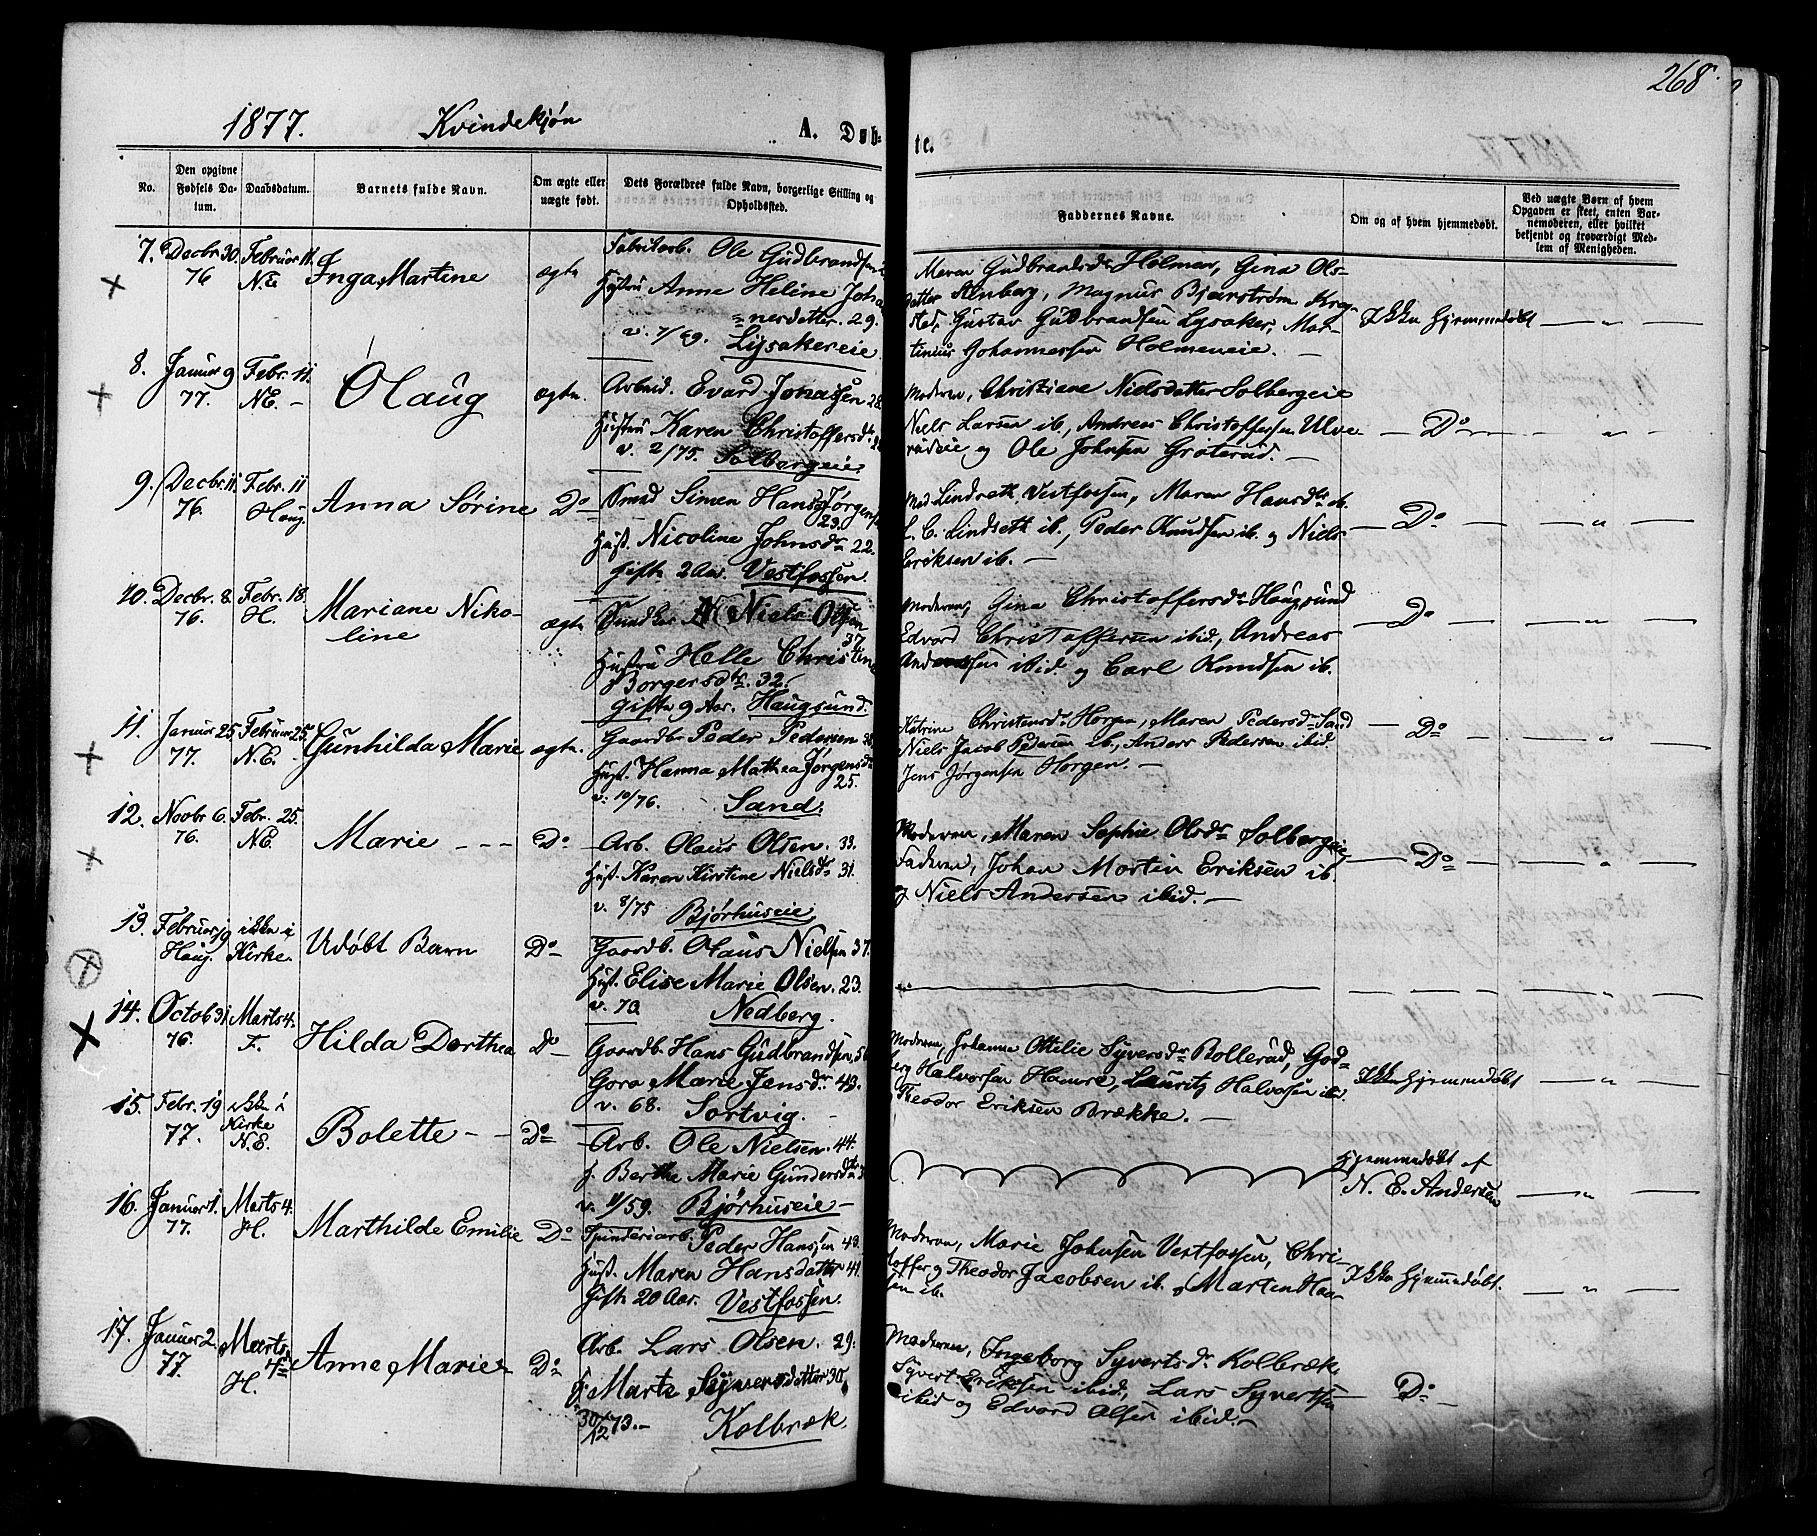 268
1877. Kvindekjøn A. Døbte.
No.
Den opgivne Fødsels Datum.
Daabsdatum.
Barnets fulde Navn.
Om ægte eller uægte født.
Dets Forældres fulde Navn, borgerlige Stilling og Opholdssted.
Faddernes Navne.
Om og af hvem hjemmedøbt.
Ved uægte Børn af hvem Opgaven er skeet, enten Barnemoderen, eller hvilket bekjendt og troværdigt Medlem af Menigheden.
7. Decbr. 30. 76
Februar 11. N.E.
Inga Martine
ægte
Fabrikarb. Ole Gudbrandsen
Hustru Anne Heline Johan-
nesdatter. 29.
v. 7/69. Lysakereie
Maren Gudbrandsdr Holmen, Gina Ols-
datter Stenberg, Magnus Bjerström Krog-
stad, Gustav Gudbrandsen Lysaker, Mar-
tinius Johannessen Holmeneie. —
Ikke hjemmedøbt — " —
8. Januar 9 77.
Febr. 11. N.E. —
Olaug
ægte
Arbeid. Evard Johnsen 28.
Hustru Karen Christoffersdr
v. 2/75. Solbergeie
Moderen, Christiane Nielsdatter Solbergeie
Niels Larsen ib., Andreas Christoffersen Ulve-
rudeie og Ole Johnsen Groterud. —
— Do — — " —
9. Decbr. 11. 76.
Febr. 11 Haug.
Anna Sørine
Do
Smed Simen Hans Jørgensen
23.
Hust. Nicoline Johnsdr 22.
Gifte 2 Aar. Vestfossen
Mad Lindseth Vestfossen, Maren Hansdtr ib.
L. C. Lindseth ib., Peder Knudsen ib. og Niels
Eriksen ib. —
— Do — — " —
10. Decbr. 8 76.
Febr. 18. H.
Mariane Niko-
line
ægte
Snedker Niels Olsen
37
Hustru Helle Christine
Borgersdtr. 32.
Gifte 9 Aar. Haugsund.
Moderen, Gina Christoffersdr Haugsund
Edvard Christoffersen ibid., Andreas
Andersen ibid. og Carl Knudsen ib.
— Do — — " —
11. Januar 25. 77.
Februar 25. N.E.
Gunhilda Marie
ægte.
Gaardbr Peder Pedersen
Hust. Hanna Mathea Jørgensdr
25.
v. 10/76. Sand.
Katrine Christensdr Horgen, Maren Pedersdr Sand
Niels Jacob Pedersen ib., Anders Pedersen ibid.
Jens Jørgensen Horgen. —
— Do — — " —
12. Novbr 6. 76.
Febr. 25. N.E.
Marie - - -
Do
Arb. Olaus Olsen. 33.
Hust. Karen Kirstine Nielsdr 31.
v. 8/75 Bjørhuseie
Moderen, Maren Sophie Olsdr Solbergeie
Faderen, Johan Morten Eriksen ib.
og Niels Andersen ibid. —
— Do — — " —
13. Februar 19 Haug.
ikke i Kirke.
Udøbt Barn
Do
Gaardb. Olaus Nielsen 37.
Hust. Elise Marie Olsen. 23.
v. 73. Nedberg.
14. Octob 31. 76.
Marts 4. F.
Hilda Dorthea
Do
Gaardb. Hans Gudbrandsen
Gora Marie Jensdr 43.
v. 68. Sortvig.
Moderen, Johanne Ottilie Syversdr Bollerud, God-
berg Halvorsen Hamre, Lauritz Halvorsen ib.
Theodor Eriksen Brække. —
Ikke hjemmedøbt — " —
15. Febr. 19 77.
ikke i Kirke N.E.
Bolette - -
Do
Arb. Ole Nielsen. 44.
H. Berthe Marie Gundersdtr
v. 11/59. Bjørhuseie —
Hjemmedøbt af
N. E. Andersen — " —
16. Januar 1. 77.
Marts 4. H.
Marthilde Emilie
Do
Spinderiarb. Peder Hansen 43.
Hust. Maren Hansdatter 41.
Gifte 20 Aar. Vestfossen.
Moderen, Marie Johnsen Vestfossen, Chri-
stoffer og Theodor Jacobsen ib. og Marten Han-
sen ib.
Ikke hjemmedøbt. — " —
17. Januar 2. 77.
Marts 4de H.
Anne Marie
Do
Arb. Lars Olsen. 29.
H. Marte Syversdatter 30.
30/12 73.— Kolbræk.
Moderen, Ingeborg Syvertsdr Kolbræk,
Syvert Eriksen ibid, Lars Syvertsen
ibid og Edvard Olsen ibid. —
— Do —